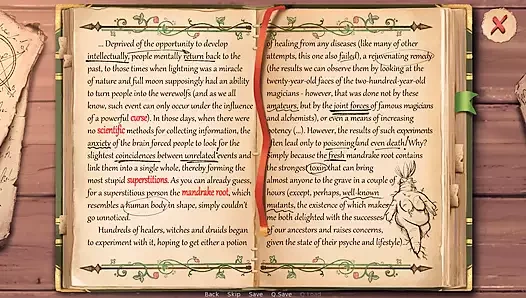 ... Deprived of the opportunity to develop
intellectually, people mentally return back to the
past, to those times when lightning was a miracle
of nature and full moon supposingly had an ability
to turn people into the werewolfs (and as we all
know, such event can only occur under the influence
of a powerful curse). In those days, when there were
no scientific methods for collecting information, the
anxiety of the brain forced people to look for the
slightest coincidences between unrelated events and
link them into a single whole, thereby forming the
most stupid superstitions. As you can already guess,
for a superstitious person the mandrake root, which
resembles a human body in shape, simply couldn't
go unnoticed.
Hundreds of healers, witches and druids began
to experiment with it, hoping to get either a potion
of healing from any diseases (like many of other
attempts, this one also failed), a rejuvenating remedy
(the results we can observe them by looking at the
twenty-year-old faces of the two-hundred-year-old
magicians - however, that was done not by these
amateurs, but by the joint forces of famous magicians
and alchemists), or even a means of increasing
potency (...). However, the results of such experiments
often lead only to poisoning (and even death) Why?
Simply because the fresh mandrake root contains
the strongest toxin that can bring
almost anyone to the grave in a couple of
hours (except, perhaps, well-known
mutants, the existence of which makes
me both delighted with the successes
of our ancestors and raises concerns,
given the state of their psyche and lifestyle).
Back Skip Save Q.Save